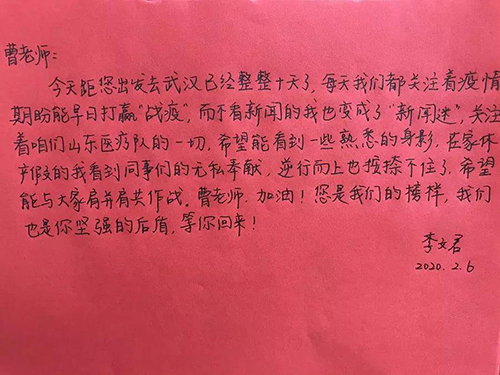 曹老师:
今天距您出发去武汉已经整整十天了,每天我们都关注着疫情
期盼能早日打赢“战疫”,而不看新闻的我也变成了“新闻迷”,关注
着咱们山东医疗队的一切,希望能看到一些熟悉的身影,在家休
产假的我看到同事们的无私奉献,逆行而上也按捺不住了,希望
能与大家肩并肩共作战。曹老师,加油!您是我们的榜样,我们
也是你坚强的后盾,等你回来!
李文君
2020.2.6